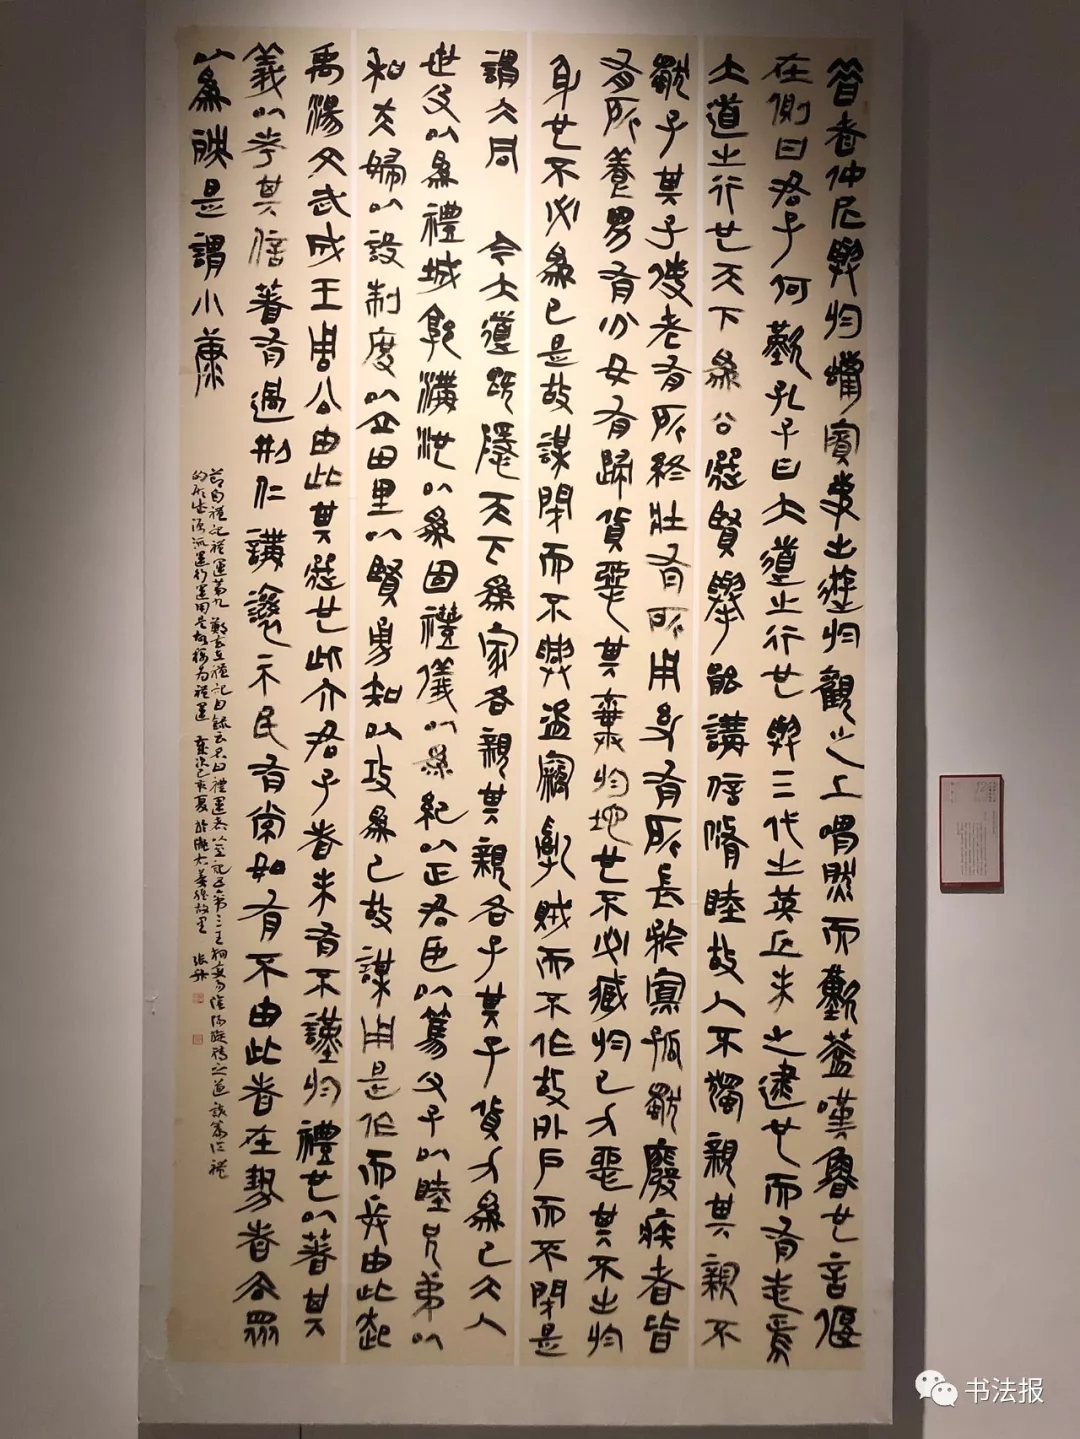 昔者仲尼與於蠟賓事之蓌於觀之上喟然而歎蓋嘆魯也言偃
在側曰君子何歎孔子曰大道之行也與三代之英丘未之逮也而有志焉
大道之行也天下為公選賢舉能講信脩睦故人不獨親其親不
獨子其子使老有所終壯有所用幼有所長矜寡孤獨廢疾者皆
有所養男有分女有歸貨惡其棄於地也不必藏於己力惡其不出於
身也不必為己是故謀閉而不興盜竊亂賊而不作故外戶而不閉是
謂大同 今大道既隱天下為家各親其親各子其子貨力為己大人
世及以為禮城郭溝池以為固禮儀以為紀以正君臣以篤父子以睦兄弟以
和夫婦以設制度以立田里以賢勇知以功為己故謀用是作而兵由此起
禹湯文武成王周公由此其選也此六君子者未有不謹於禮也以著其
義以考其信著有過刑仁講讓示民有常如有不由此者在勢者去眾
以為殃是謂小康
節自禮記禮運第九鄭玄云禮記目錄云名曰禮運者以其記五帝三王相變易陰陽旋轉之道該篇論禮
的形成源流運行運用等故稱為禮運 歲次己亥夏於
書法报